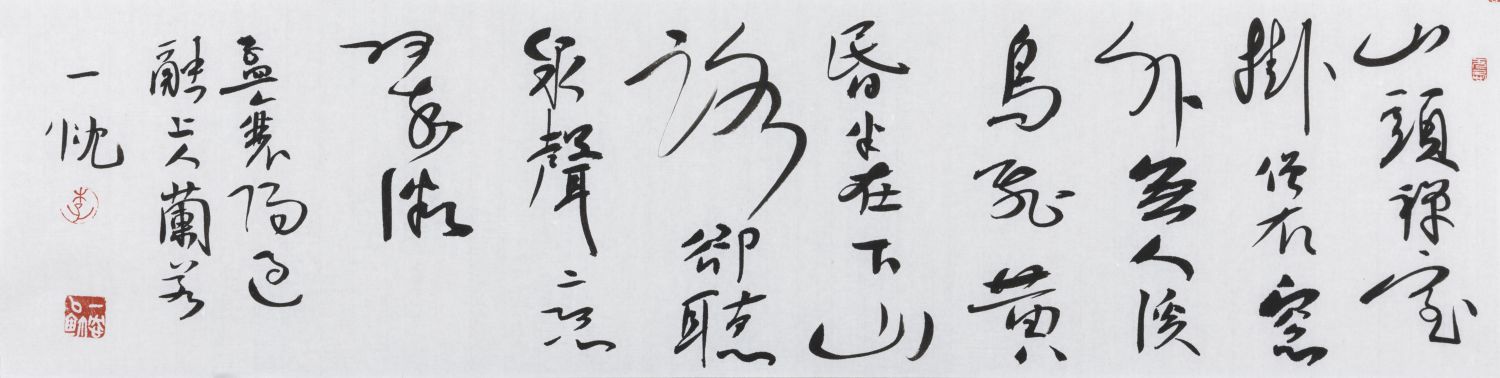 山頭禪室
掛僧衣窗
外無人溪
鳥飛黃
昏半在下山
路卻聽
泉聲戀
翠微
孟襄陽過
融上人蘭若
一忱
李